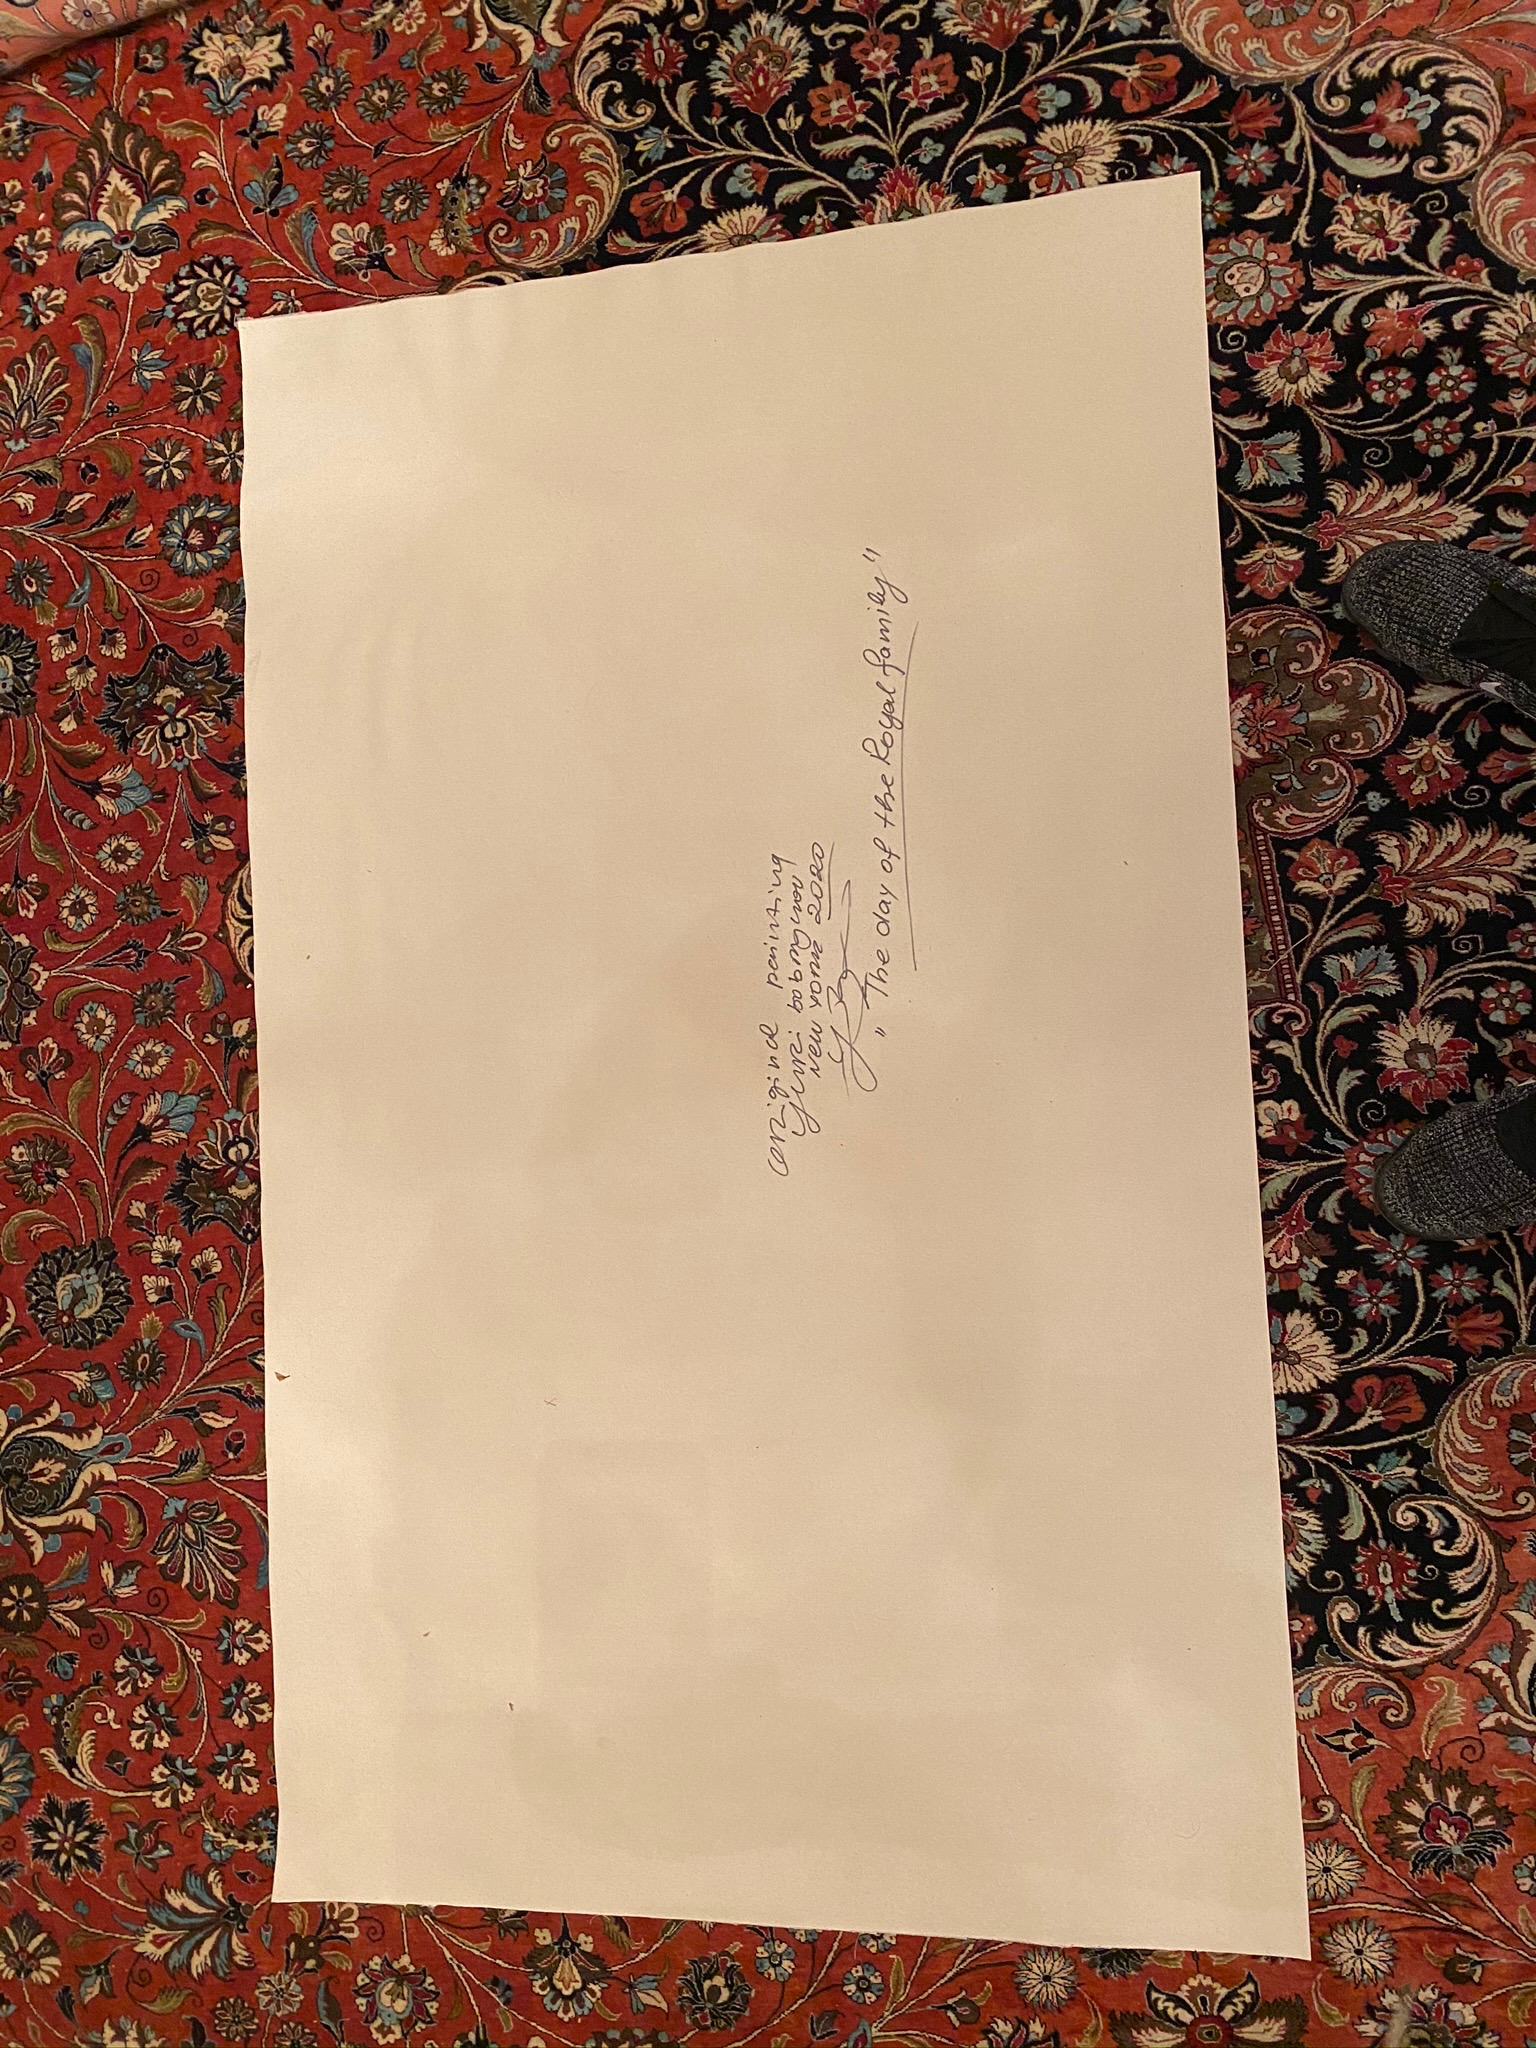 original painting
Yuri Bobryshov
New York 2020
"The day of the Royal family"